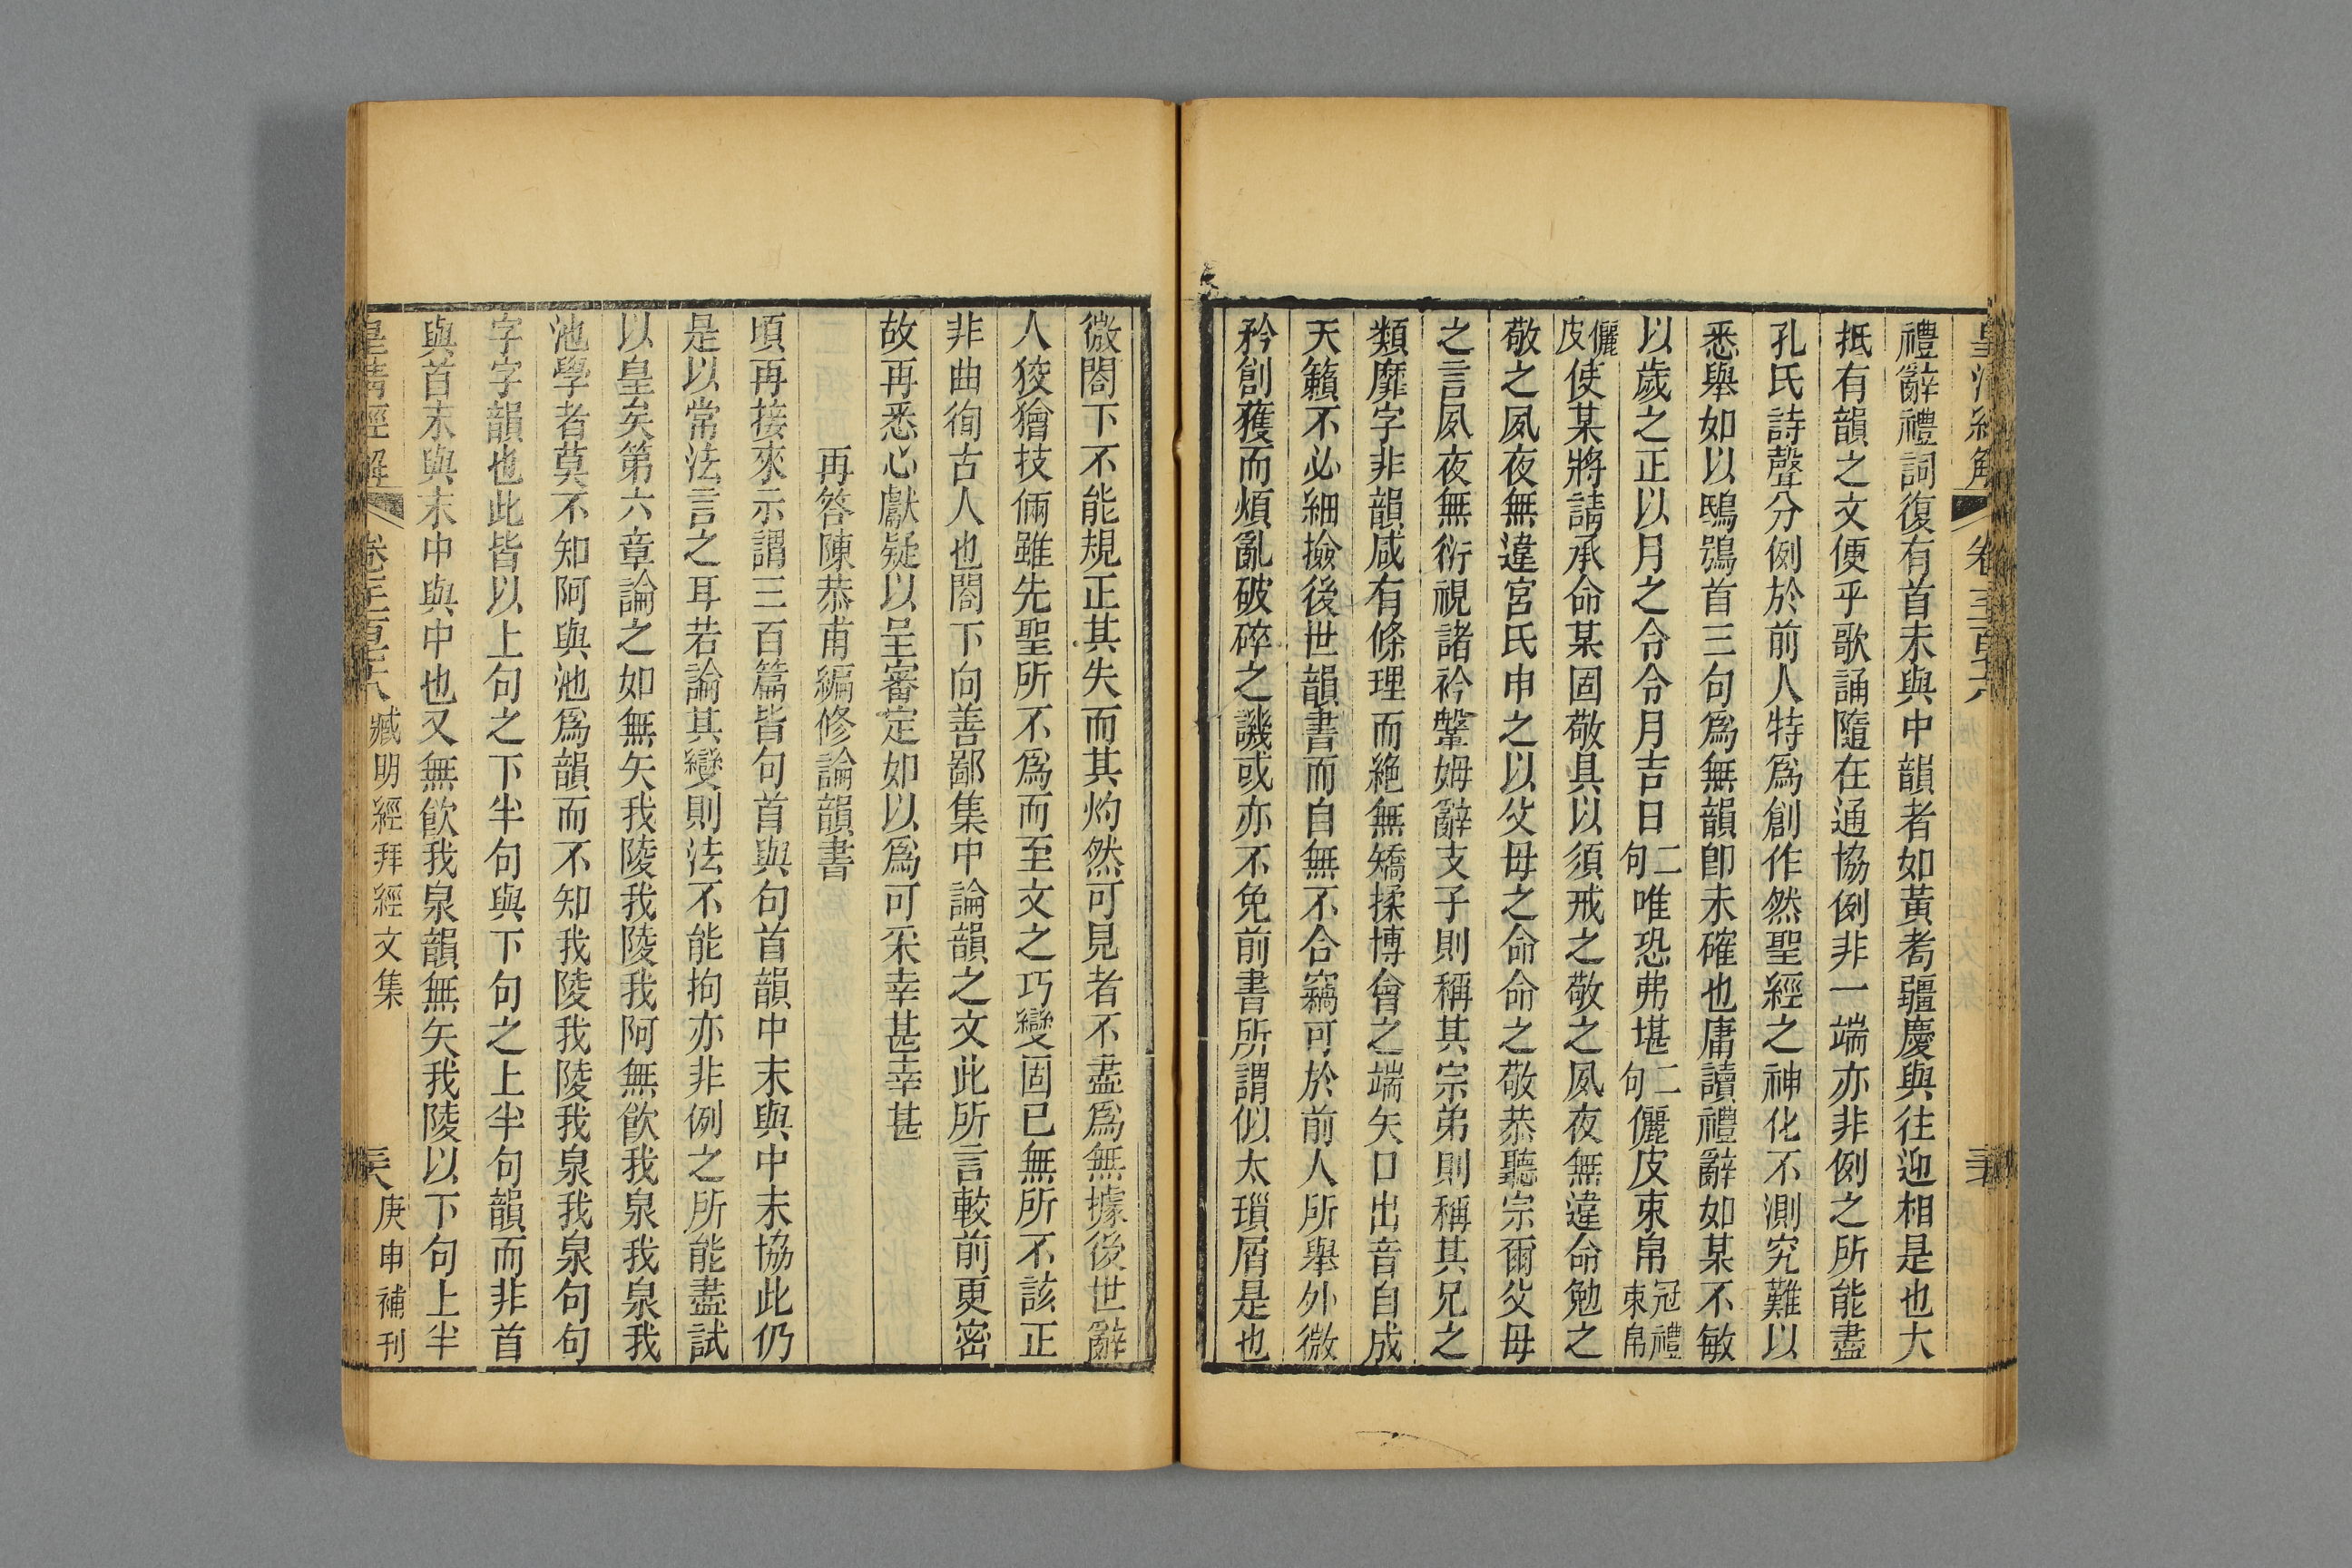 禮辭禮詞復有首末與中韻者如黃耇疆慶與往迎相是也大
抵有韻之文便乎歌誦隨在通協例非一端亦非例之所能盡
孔氏詩聲分例於前人特爲創作然聖經之神化不測究難以
悉舉如以鴟鴞首三句爲無韻卽未確也庸讀禮辭如某不敏
以歲之正以月之令令月吉日二句唯恐弗堪二句儷皮束帛冠禮束帛
儷皮使某將請承命某固敬具以須戒之敬之夙夜無違命勉之
敬之夙夜無違宮氏申之以父母之命命之敬恭聽宗爾父母
之言夙夜無衍視諸衿鞶姆辭支子則稱其宗弟則稱其兄之
類靡字非韻咸有條理而絶無矯揉博會之端矢口出音自成
天籟不必細撿後世韻書而自無不合竊可於前人所舉外微
矜創獲而煩亂破碎之譏或亦不免前書所謂似太瑣屑是也
微閣下不能規正其失而其灼然可見者不盡爲無據後世辭
人狡獪技倆雖先聖所不爲而至文之巧變固已無所不該正
非曲徇古人也閣下向善鄙集中論韻之文此所言較前更密
故再悉心獻疑以呈審定如以爲可采幸甚幸甚
再答陳恭甫編修論韻書
頃再接來示謂三百篇皆句首與句首韻中末與中末協此仍
是以常法言之耳若論其變則法不能拘亦非例之所能盡試
以皇矣第六章論之如無矢我陵我陵我阿無飮我泉我泉我
池學者莫不知阿與池爲韻而不知我陵我陵我泉我泉句句
字字韻也此皆以上句之下半句與下句之上半句韻而非首
與首末與末中與中也又無飮我泉韻無矢我陵以下句上半
皇淸經解
臧明經拜經文集
庚申補刊